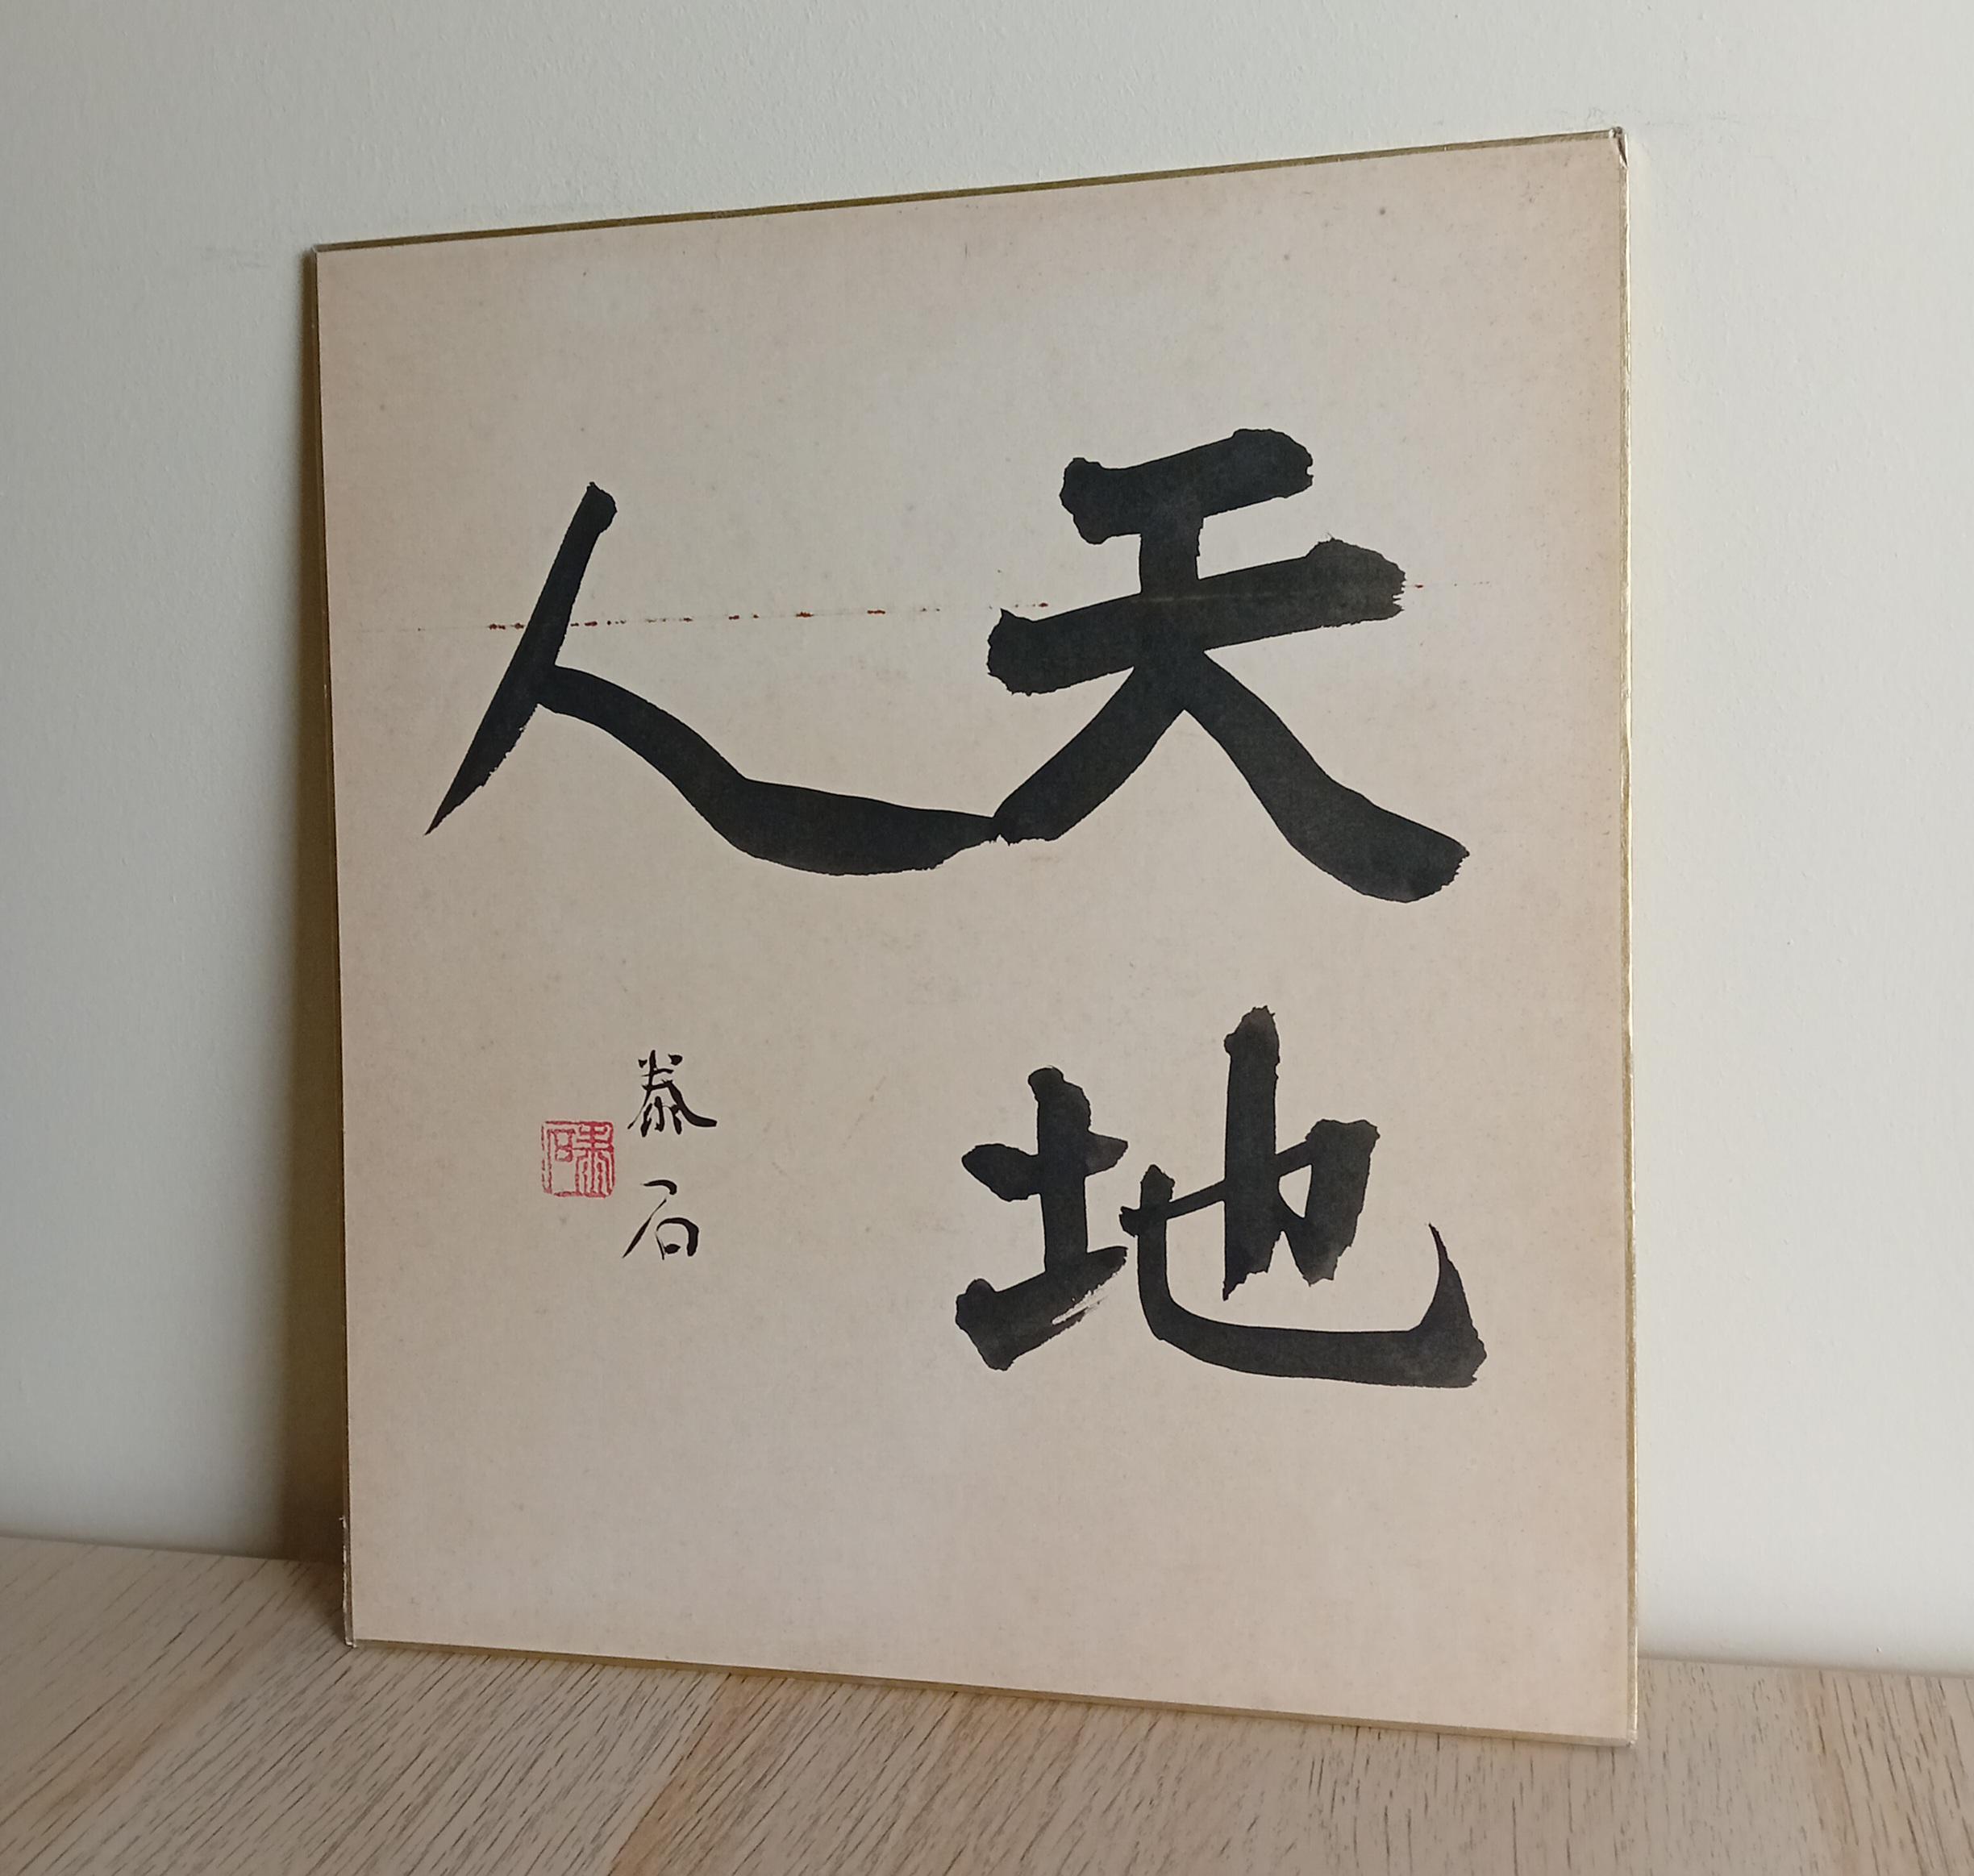 天地
人
泰石